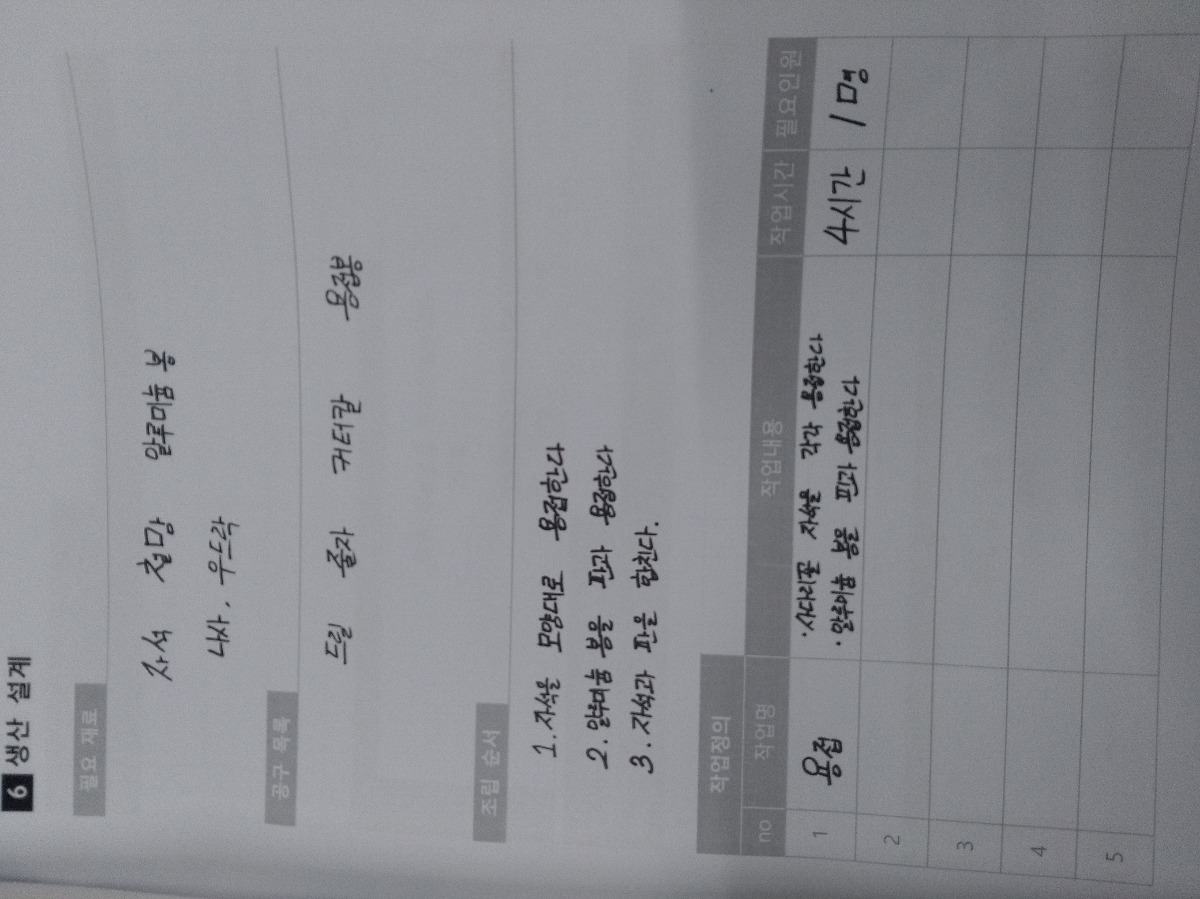 6 생산 설계
필요 재료
자석 철망 알루미늄 봉
나사, 우드락
공구 목록
드릴 줄자 커터칼 용접봉
조립 순서
1. 자석을 모양대로 용접한다
2. 알루미늄 봉을 판과 용접한다
3. 자석과 판을 합친다.
작업정의
no 작업명 작업내용 작업시간 필요인원
1 용접 사다리꼴 자석을 각각 용접한다 4시간 1명
알루미늄 봉을 판과 용접한다
2
3
4
5